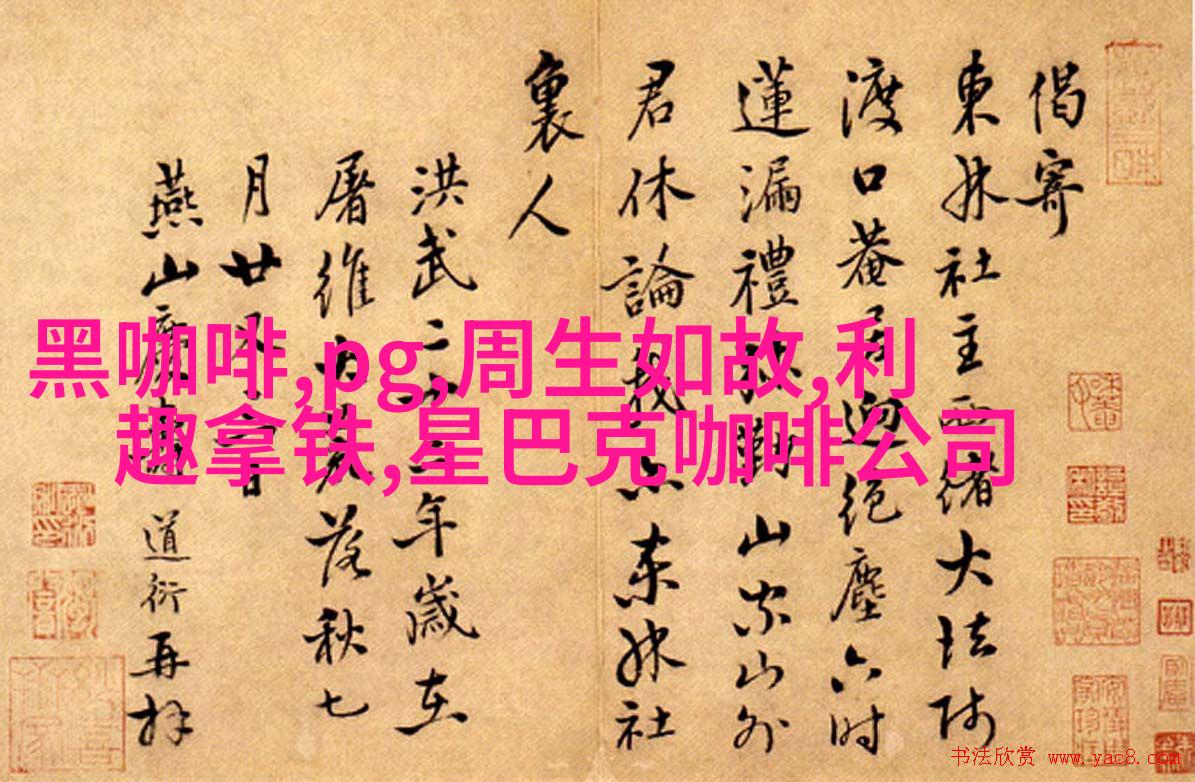 偈寄
東林社主緒大法師
渡口菴居迥絕塵六時
蓮漏禮勤山家山外
君休論我東林社
裏人
洪武二年歲在
屠維大荒落秋七
月廿日
燕山道衍再拜
黑咖啡,pg,周生如故,利
趣拿铁,星巴克咖啡公司
书法欣赏 www.yac8.com